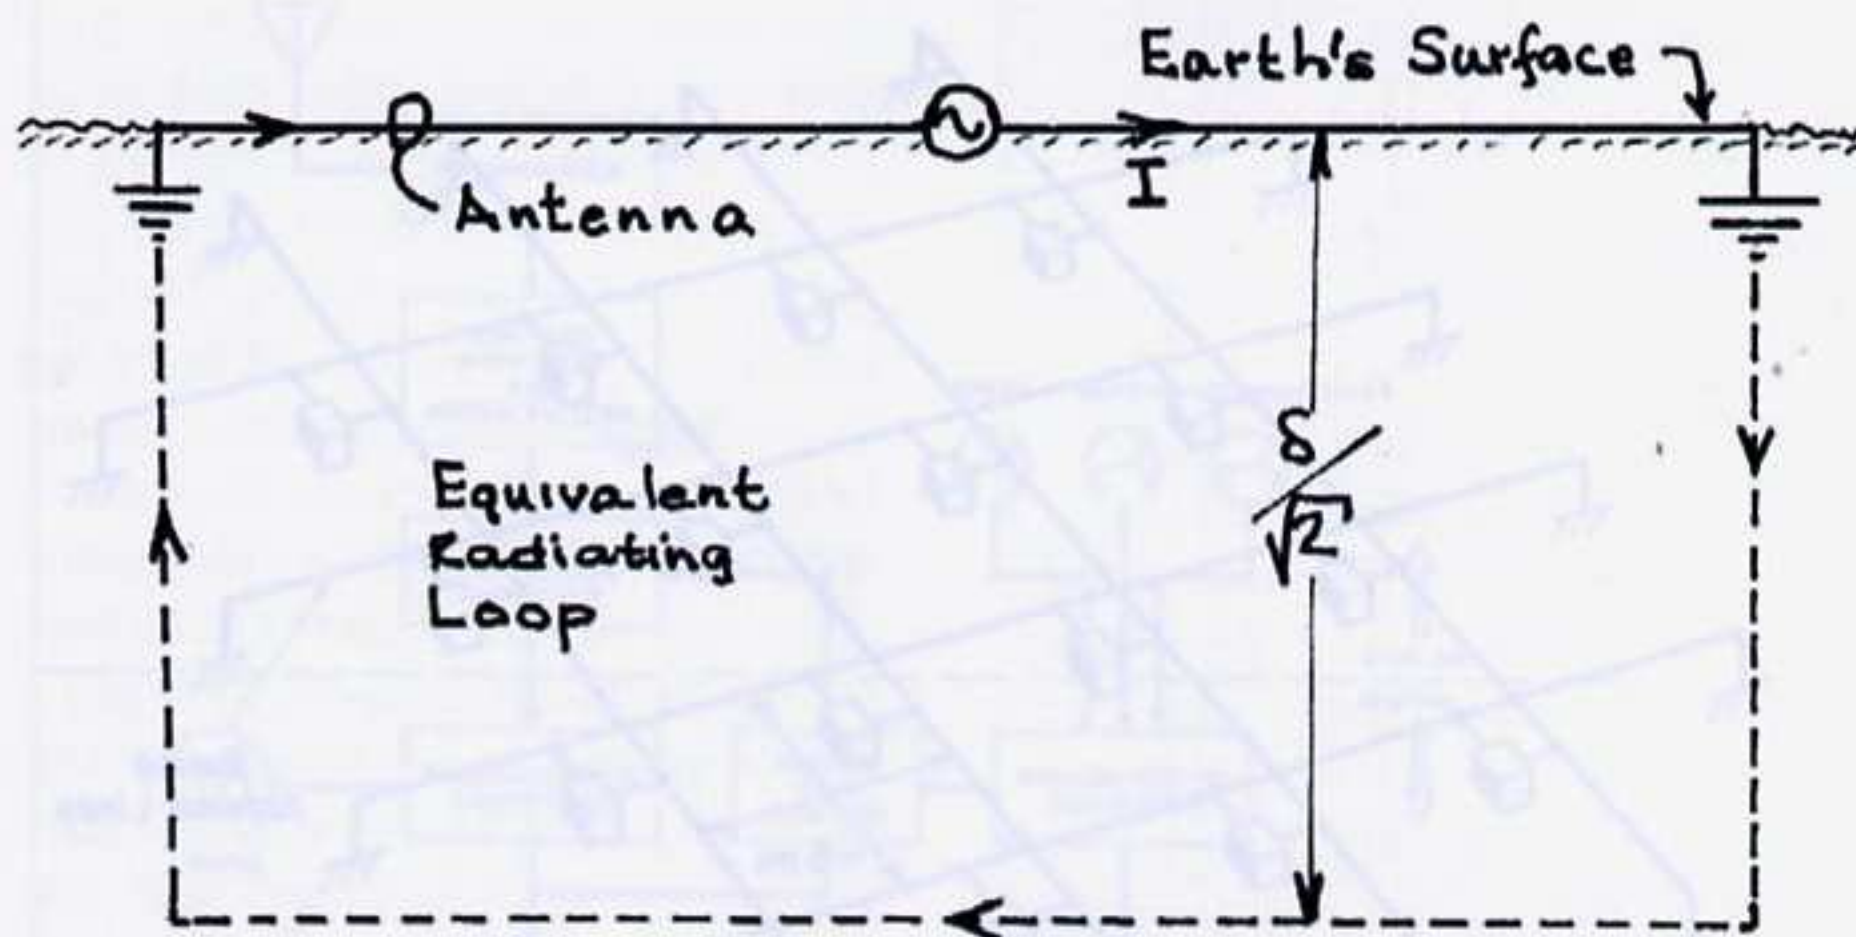 Earth's Surface
Antenna
I
δ/√2
Equivalent
Radiating
Loop